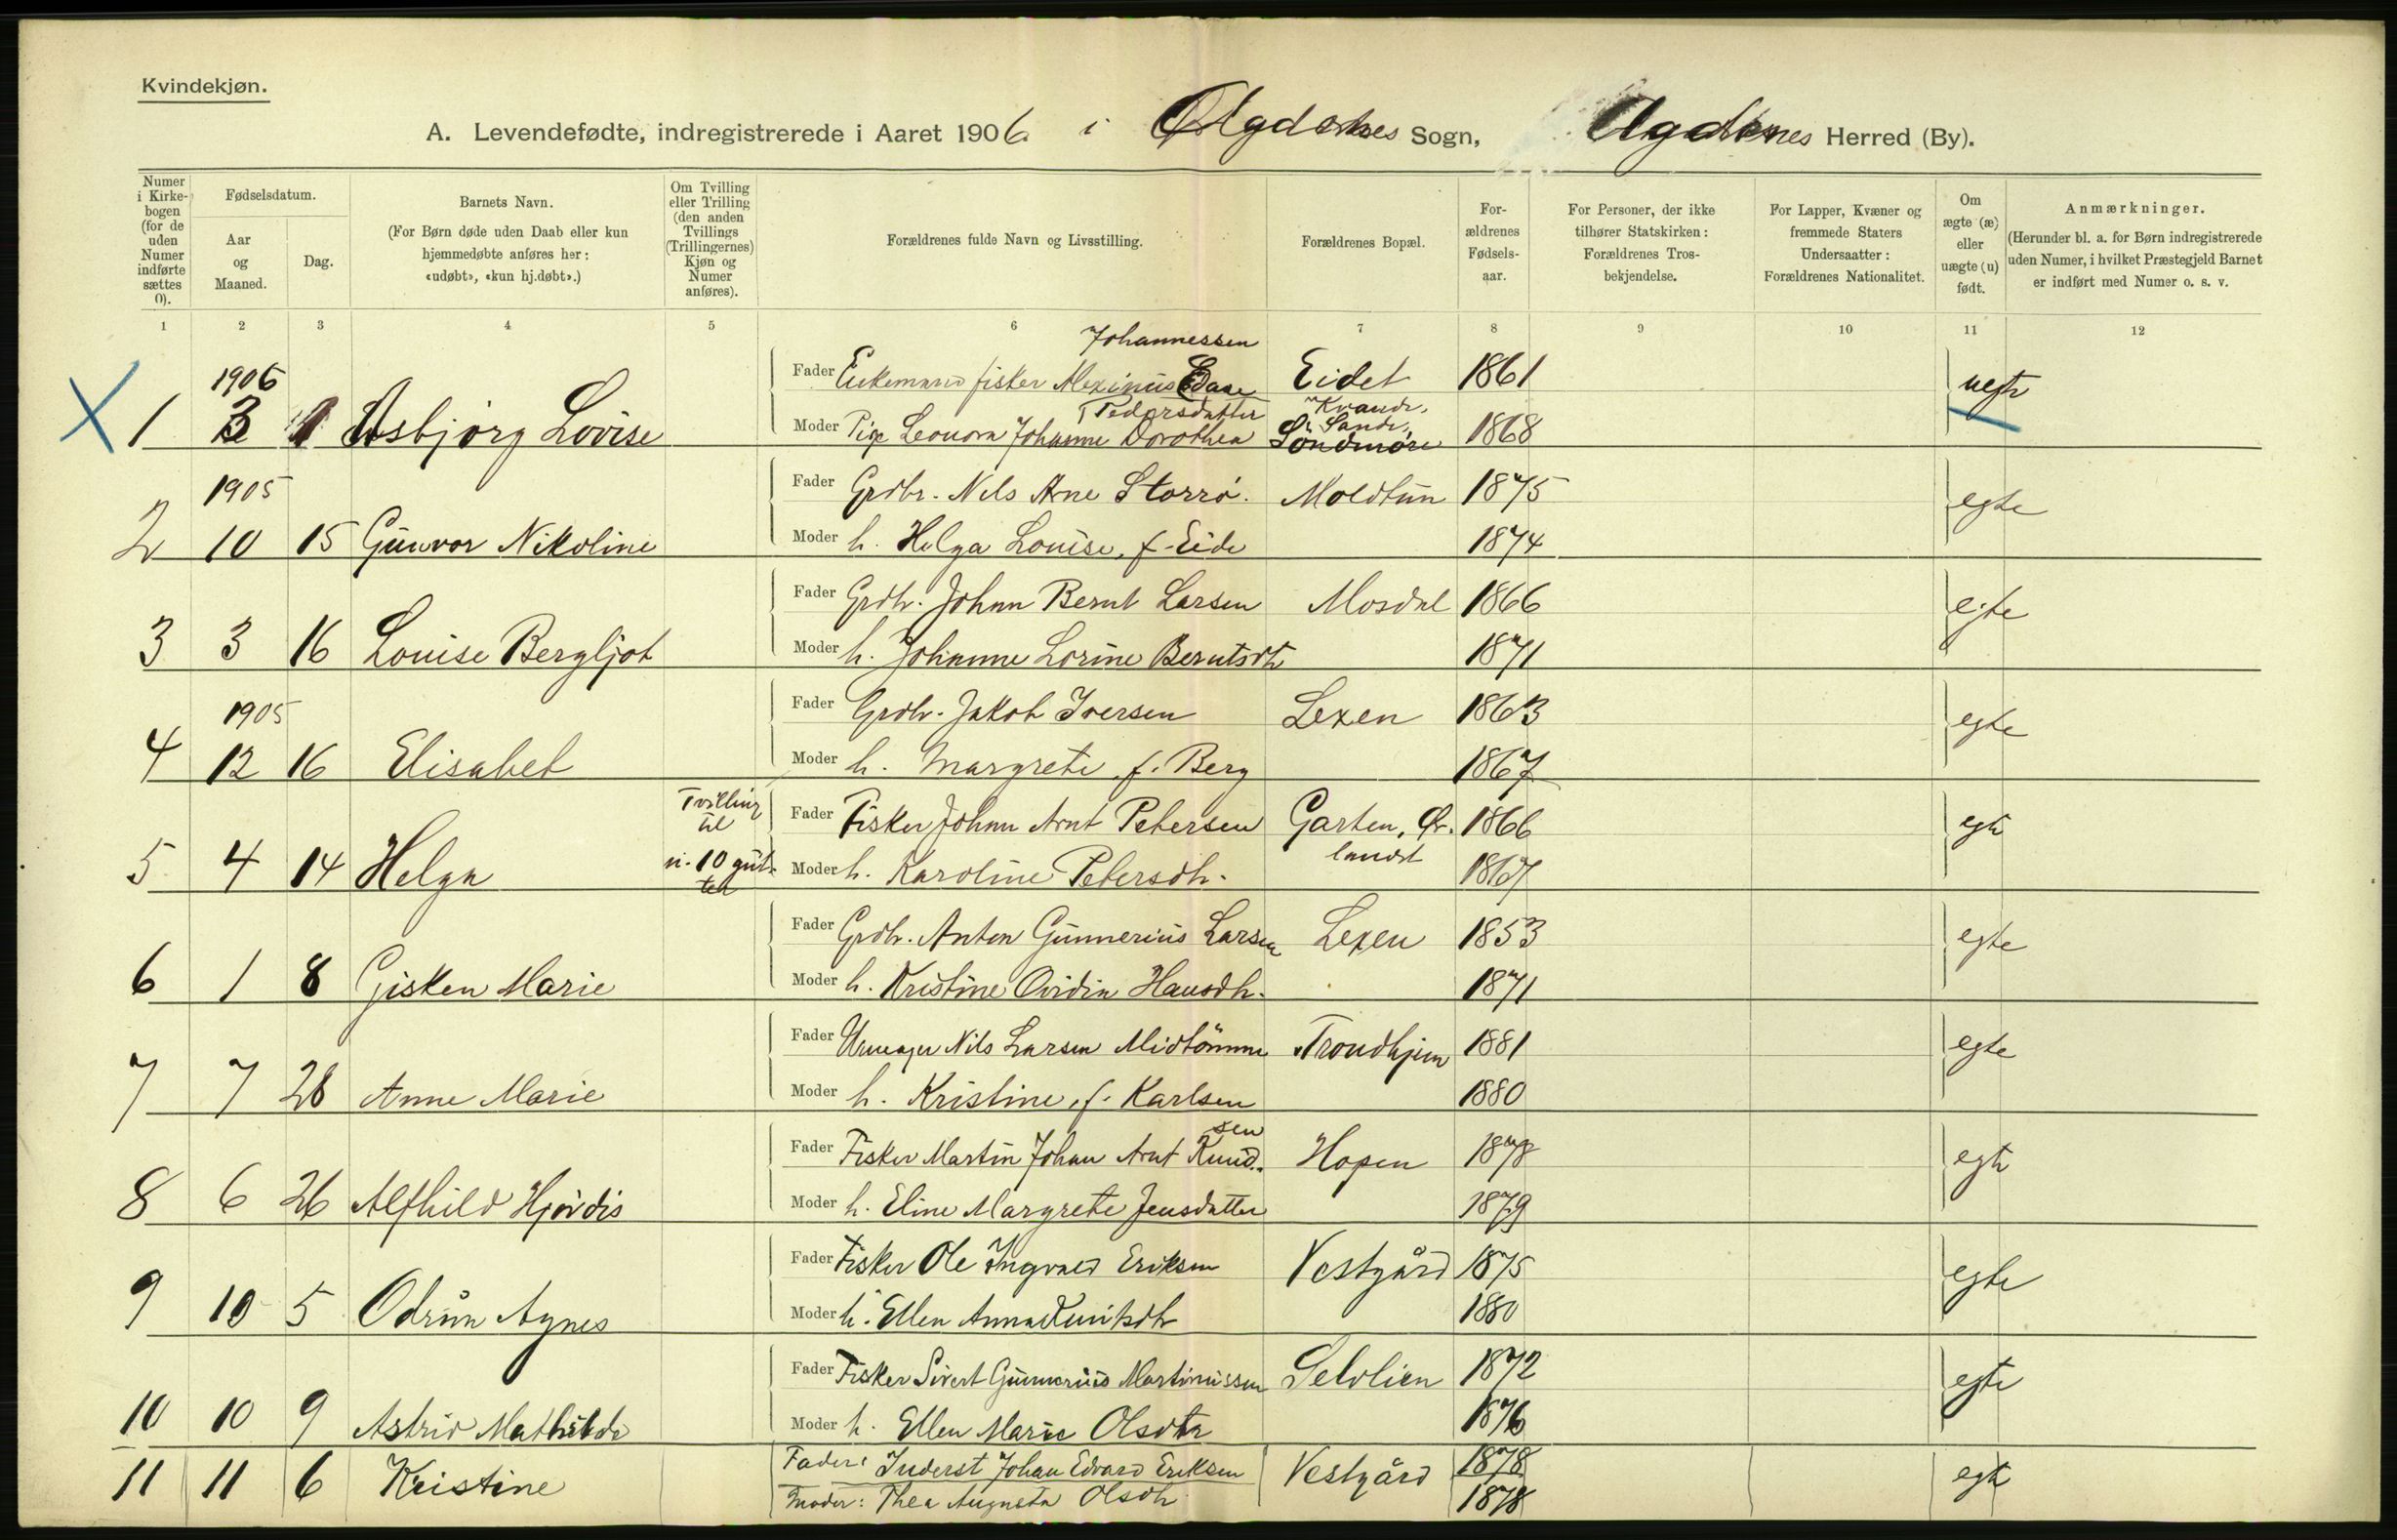 Kvindekjøn.
A. Levendefødte, indregistrerede i Aaret 1906. i Agdenes Sogn, Agdenes Herred (By).
Numer i Kirkebogen (for de uden Numer indførte sættes 0).
Fødselsdatum.
Aar og Maaned.
Dag.
Barnets Navn.
(For Børn døde uden Daab eller kun hjemmedøbte anføres her: «udøbt», «kun hj.døbt».)
Om Tvilling eller Trilling (den anden Tvillings (Trillingernes) Kjøn og Numer anføres).
Forældrenes fulde Navn og Livsstilling.
Forældrenes Bopæl.
For-ældrenes Fødsels-aar.
For Personer, der ikke tilhører Statskirken: Forældrenes Tros-bekjendelse.
For Lapper, Kvæner og fremmede Staters Undersaatter: Forældrenes Nationalitet.
Om ægte (æ) eller uægte (u) født.
Anmærkninger.
(Herunder bl. a. for Børn indregistrerede uden Numer, i hvilket Præstegjeld Barnet er indført med Numer o. s. v.
1 2 3 4 5 6 7 8 9 10 11 12
Johannessen
1906 Fader Enkemand fisker Meximus Eidet 1861 uegte
X 1 3 1 Asbjørg Lovise Moder Pige Leonora Johanne Dorothea Pedersdatter Kvande, Sande, Søndmøre 1868
1905 Fader Grdbr. Nils Arne Storrø. Moldtun 1875 egte
2 10 15 Gunvor Nikoline Moder h. Helga Louise, f. Eide 1874
Fader Grdbr. Johan Bernt Larsen Mosdal 1866 egte
3 3 16 Louise Bergljot Moder h. Johanne Lorine Berntsdtr 1871
1905 Fader Grdbr. Jakob Iversen Lexen 1863 egte
4 12 16 Elisabet Moder h. Margrete f. Berg 1867
Tvilling til Fader Fisker Johan Arnt Petersen Garten, Ør- 1866 egte
5 4 14 Helga n. 10 gut- Moder h. Karoline Petersdtr. landet 1867
Fader Grdbr. Anton Gunnerius Larsen Lexen 1853 egte
6 1 8 Gisken Marie Moder h. Kristine Ovidia Hansdtr. 1871
Fader Urmager Nils Larsen Midtømme Trondhjem 1881 egte
7 7 28 Anne Marie Moder h. Kristine, f. Karlsen 1880
Fader Fisker Martin Johan Arnt Knudsen Hopen 1878 egte
8 6 26 Alfhild Hjørdis Moder h. Eline Margrete Jensdatter 1879
Fader Fisker Ole Ingvald Eriksen Vestgård 1875 egte
9 10 5 Odrun Agnes Moder h. Ellen Anna 1880
Fader Fisker Sivert Gunnerius Martinussen Selvlien 1872 egte
10 10 9 Astrid Mathilde Moder h. Ellen Marie Olsdtr 1876
Fader: Inderst Johan Edvard Eriksen Vestgård 1878 egte
11 11 6 Kristine Moder: Thea Augusta Olsdtr 1878